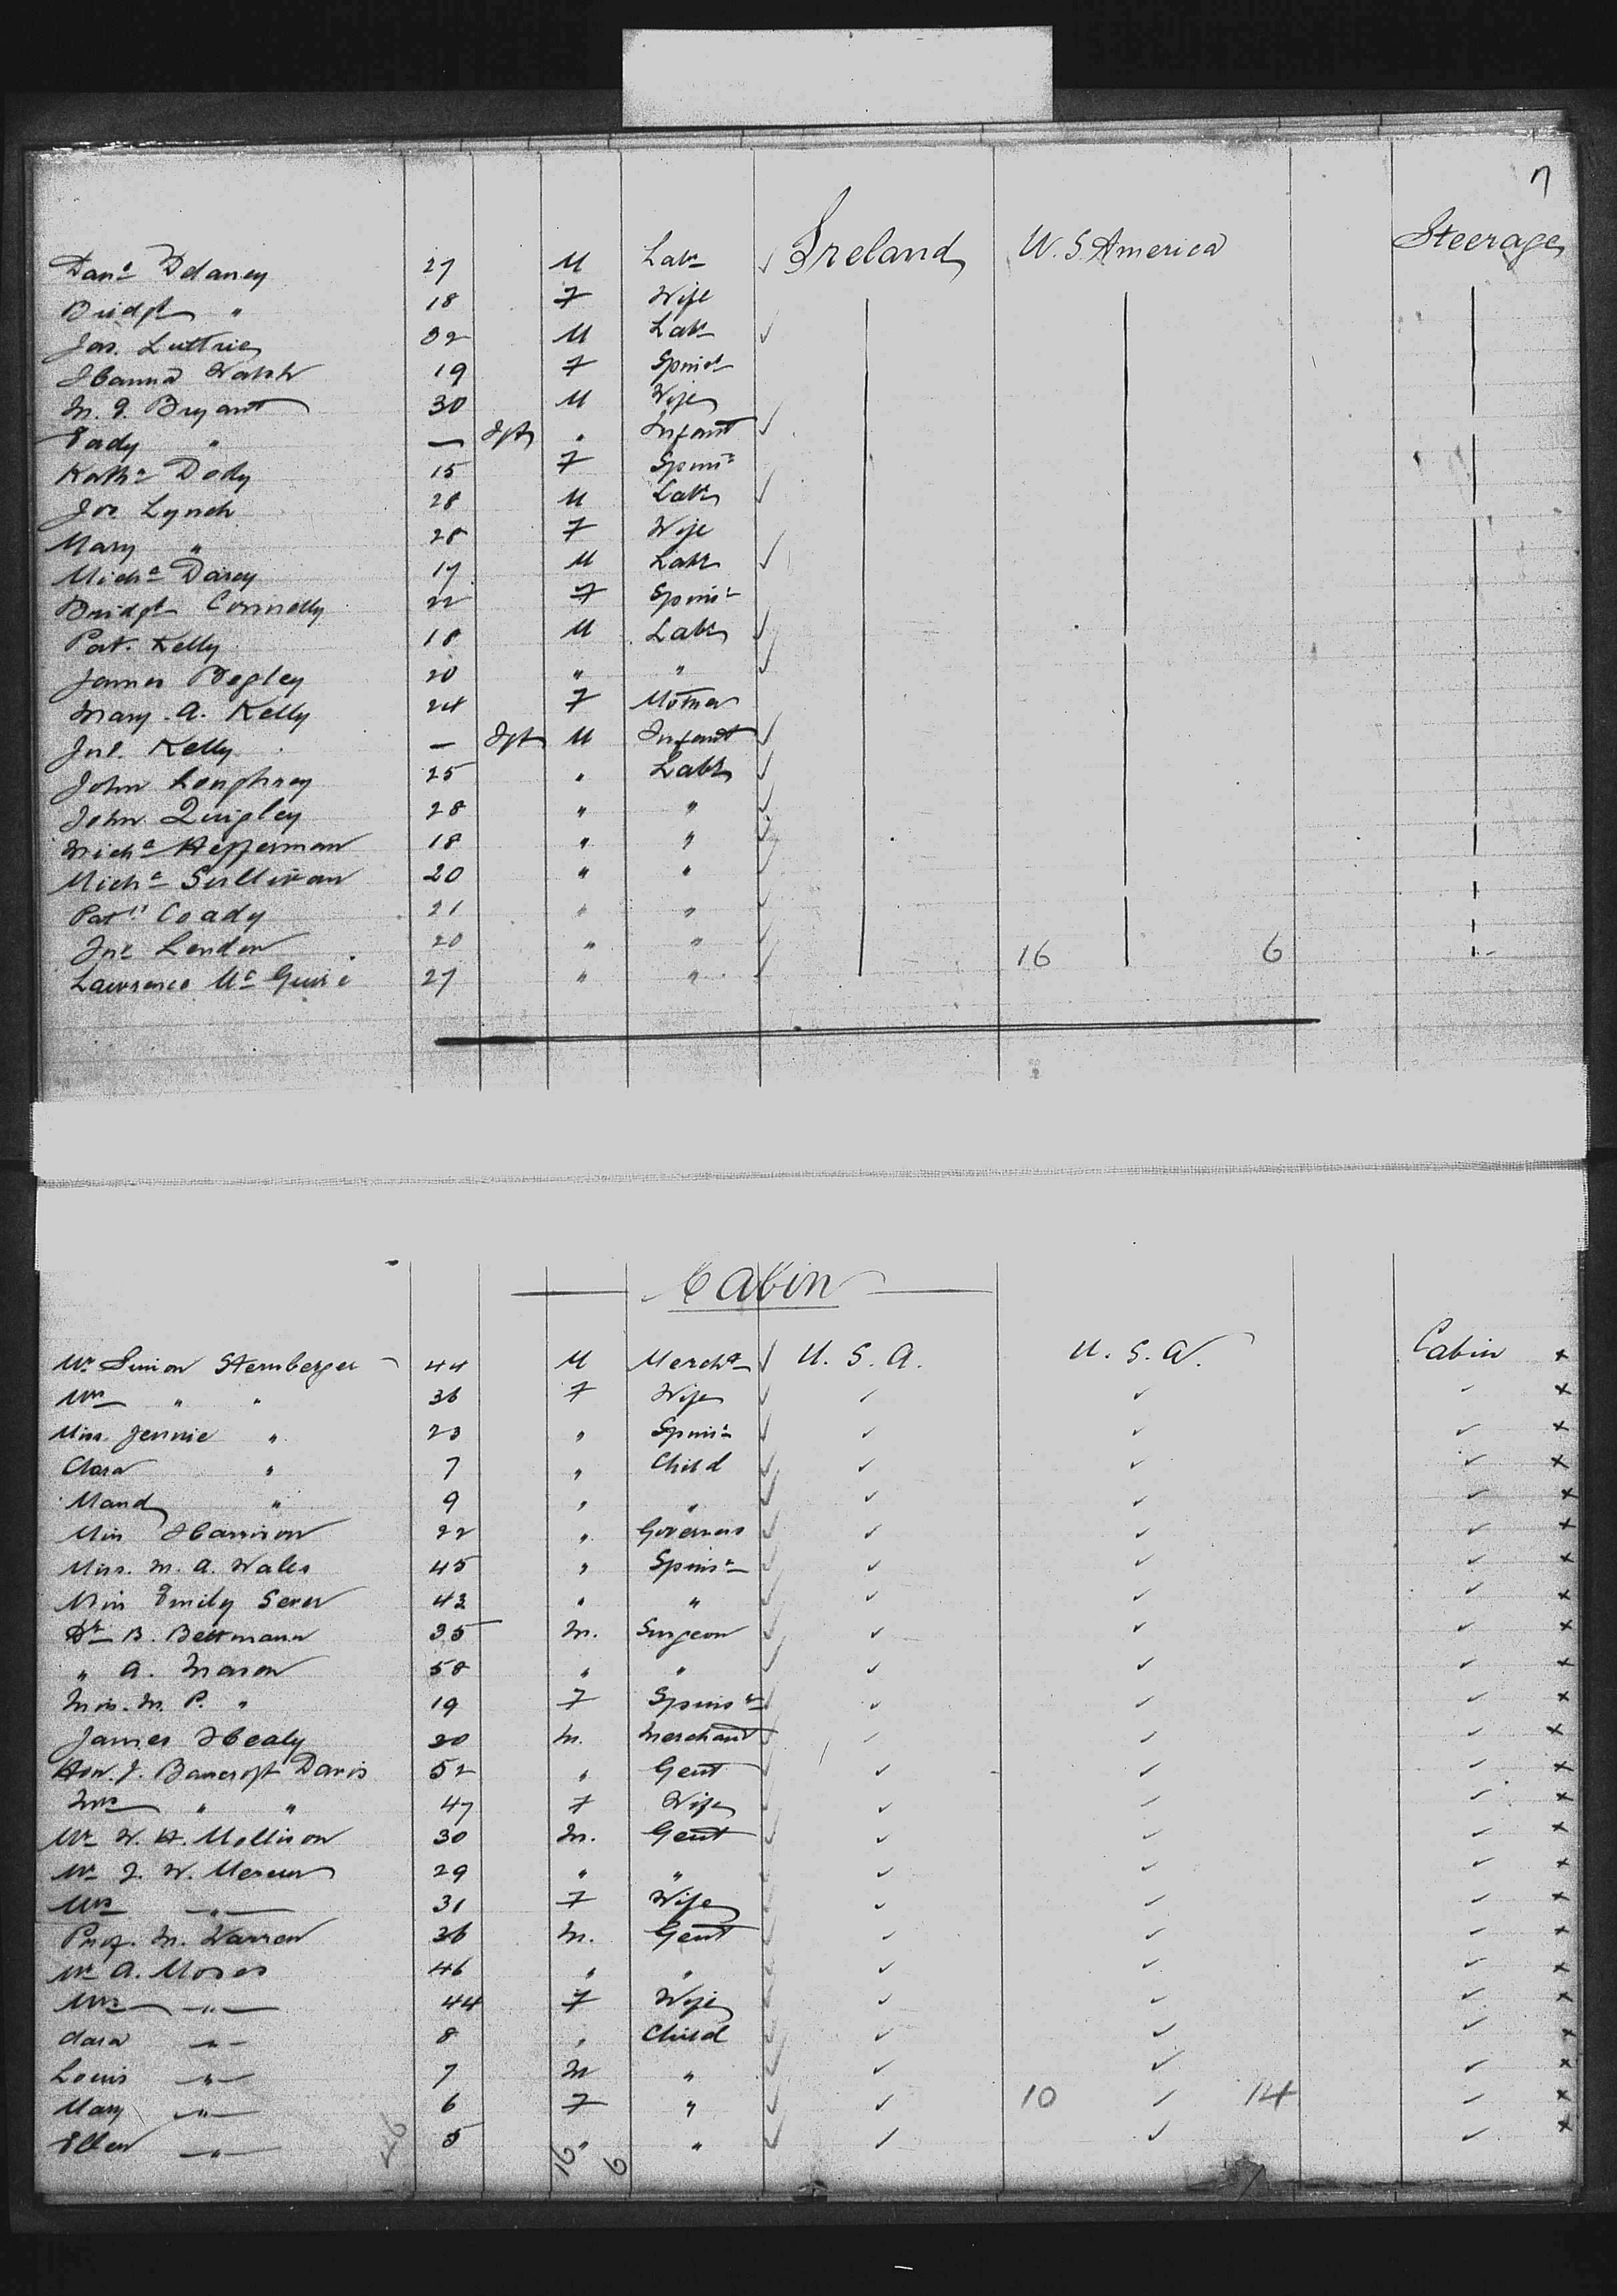 7
Danl Delaney 27 M Labr Ireland U.S. America Steerage
Bridgt " 18 F Wife
Jas. Luttrie 32 M Labr
Hanna Walsh 19 F Spinst
M. J. Bryant 30 M Wife
" — Infant
Kathe Dody 15 F Spinr
Jos Lynch 28 M Labr
Mary " 28 F Wife
Michl Darcy 17 M Labr
Bridgt Connolly 22 F Spinr
Pat. Kelly 18 M Labr
James Begley 20 " "
Mary A. Kelly 24 F Mother
Jno. Kelly — M Infant
John Loughrey 25 " Labr
John Quigley 28 " "
Michl Heffernan 18 " "
Michl Sullivan 20 " "
Patk Coady 21 " "
Jno Lendon 20 " " 16 6
Lawrence McGuire 27 " "
Cabin
Mr Simon Sternberger 44 M Mercht U.S.A. U.S.A. Cabin x
Mrs " " 36 F Wife x
Miss Jennie " 23 " Spinr x
Clara " 7 " Child x
Maud " 9 " " x
Miss Harrison 22 " Governess x
Miss M. A. Wales 45 " Spinsr x
Miss Emily Sever 43 " " x
Dr B. Bettmann 35 M. Surgeon x
" A. Mason 58 " " x
Miss. M. P. " 19 F Spinsr x
James Healy 30 M. Merchant x
Hon. J. Bancroft Davis 52 " Gent x
Mrs " " 47 F Wife x
Mr W. H. Mollison 30 M. Gent x
Mr J. W. Mercur 29 " " x
Mrs " 31 F Wife x
Prof. M. Warren 36 M. Gent x
Mr A. Moses 46 " " x
Mrs " 44 F Wife x
Clara " 8 " Child x
Louis " 7 M " x
Mary " 6 F " 10 14 x
Ellen " 5 " " x
46 16 6